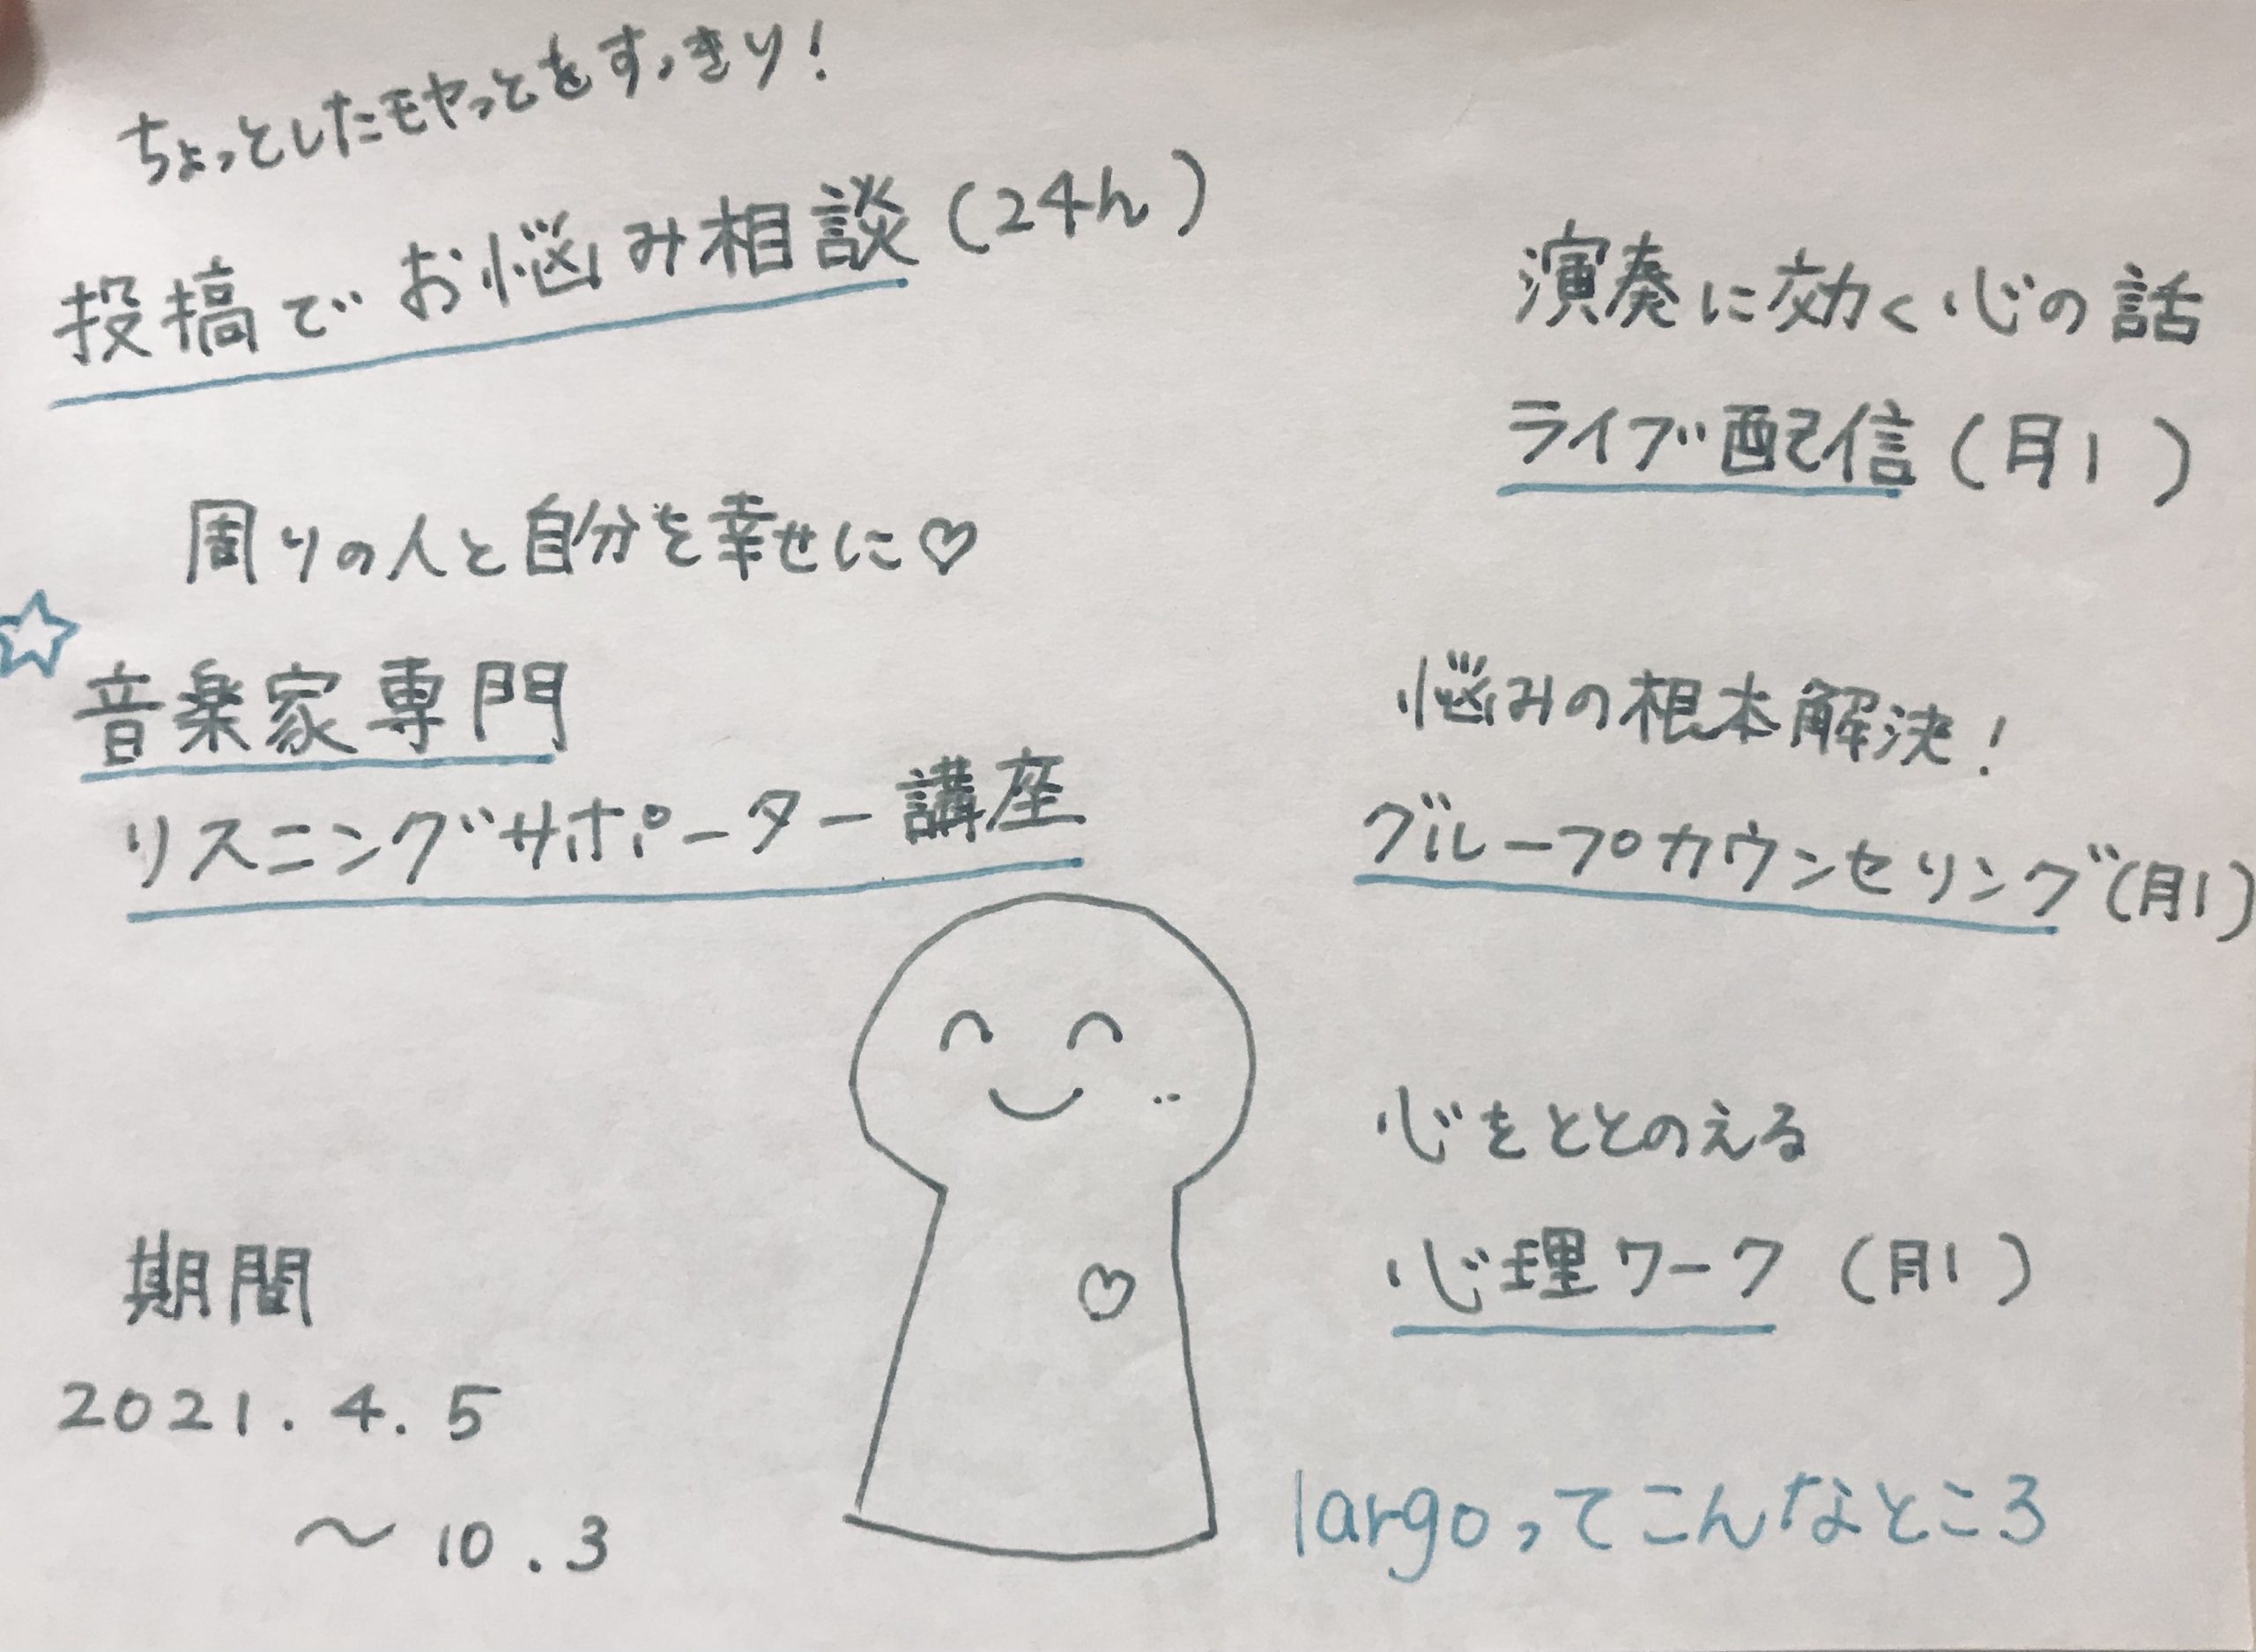 ちょっとしたモヤっとをすっきり!
投稿でお悩み相談(24h)
周りの人と自分を幸せに♡
☆
音楽家専門
リスニングサポーター講座
期間
2021.4.5
〜10.3
演奏に効く心の話
ライブ配信(月1)
悩みの根本解決!
グループカウンセリング(月1)
心をととのえる
心理ワーク(月1)
largoってこんなところ